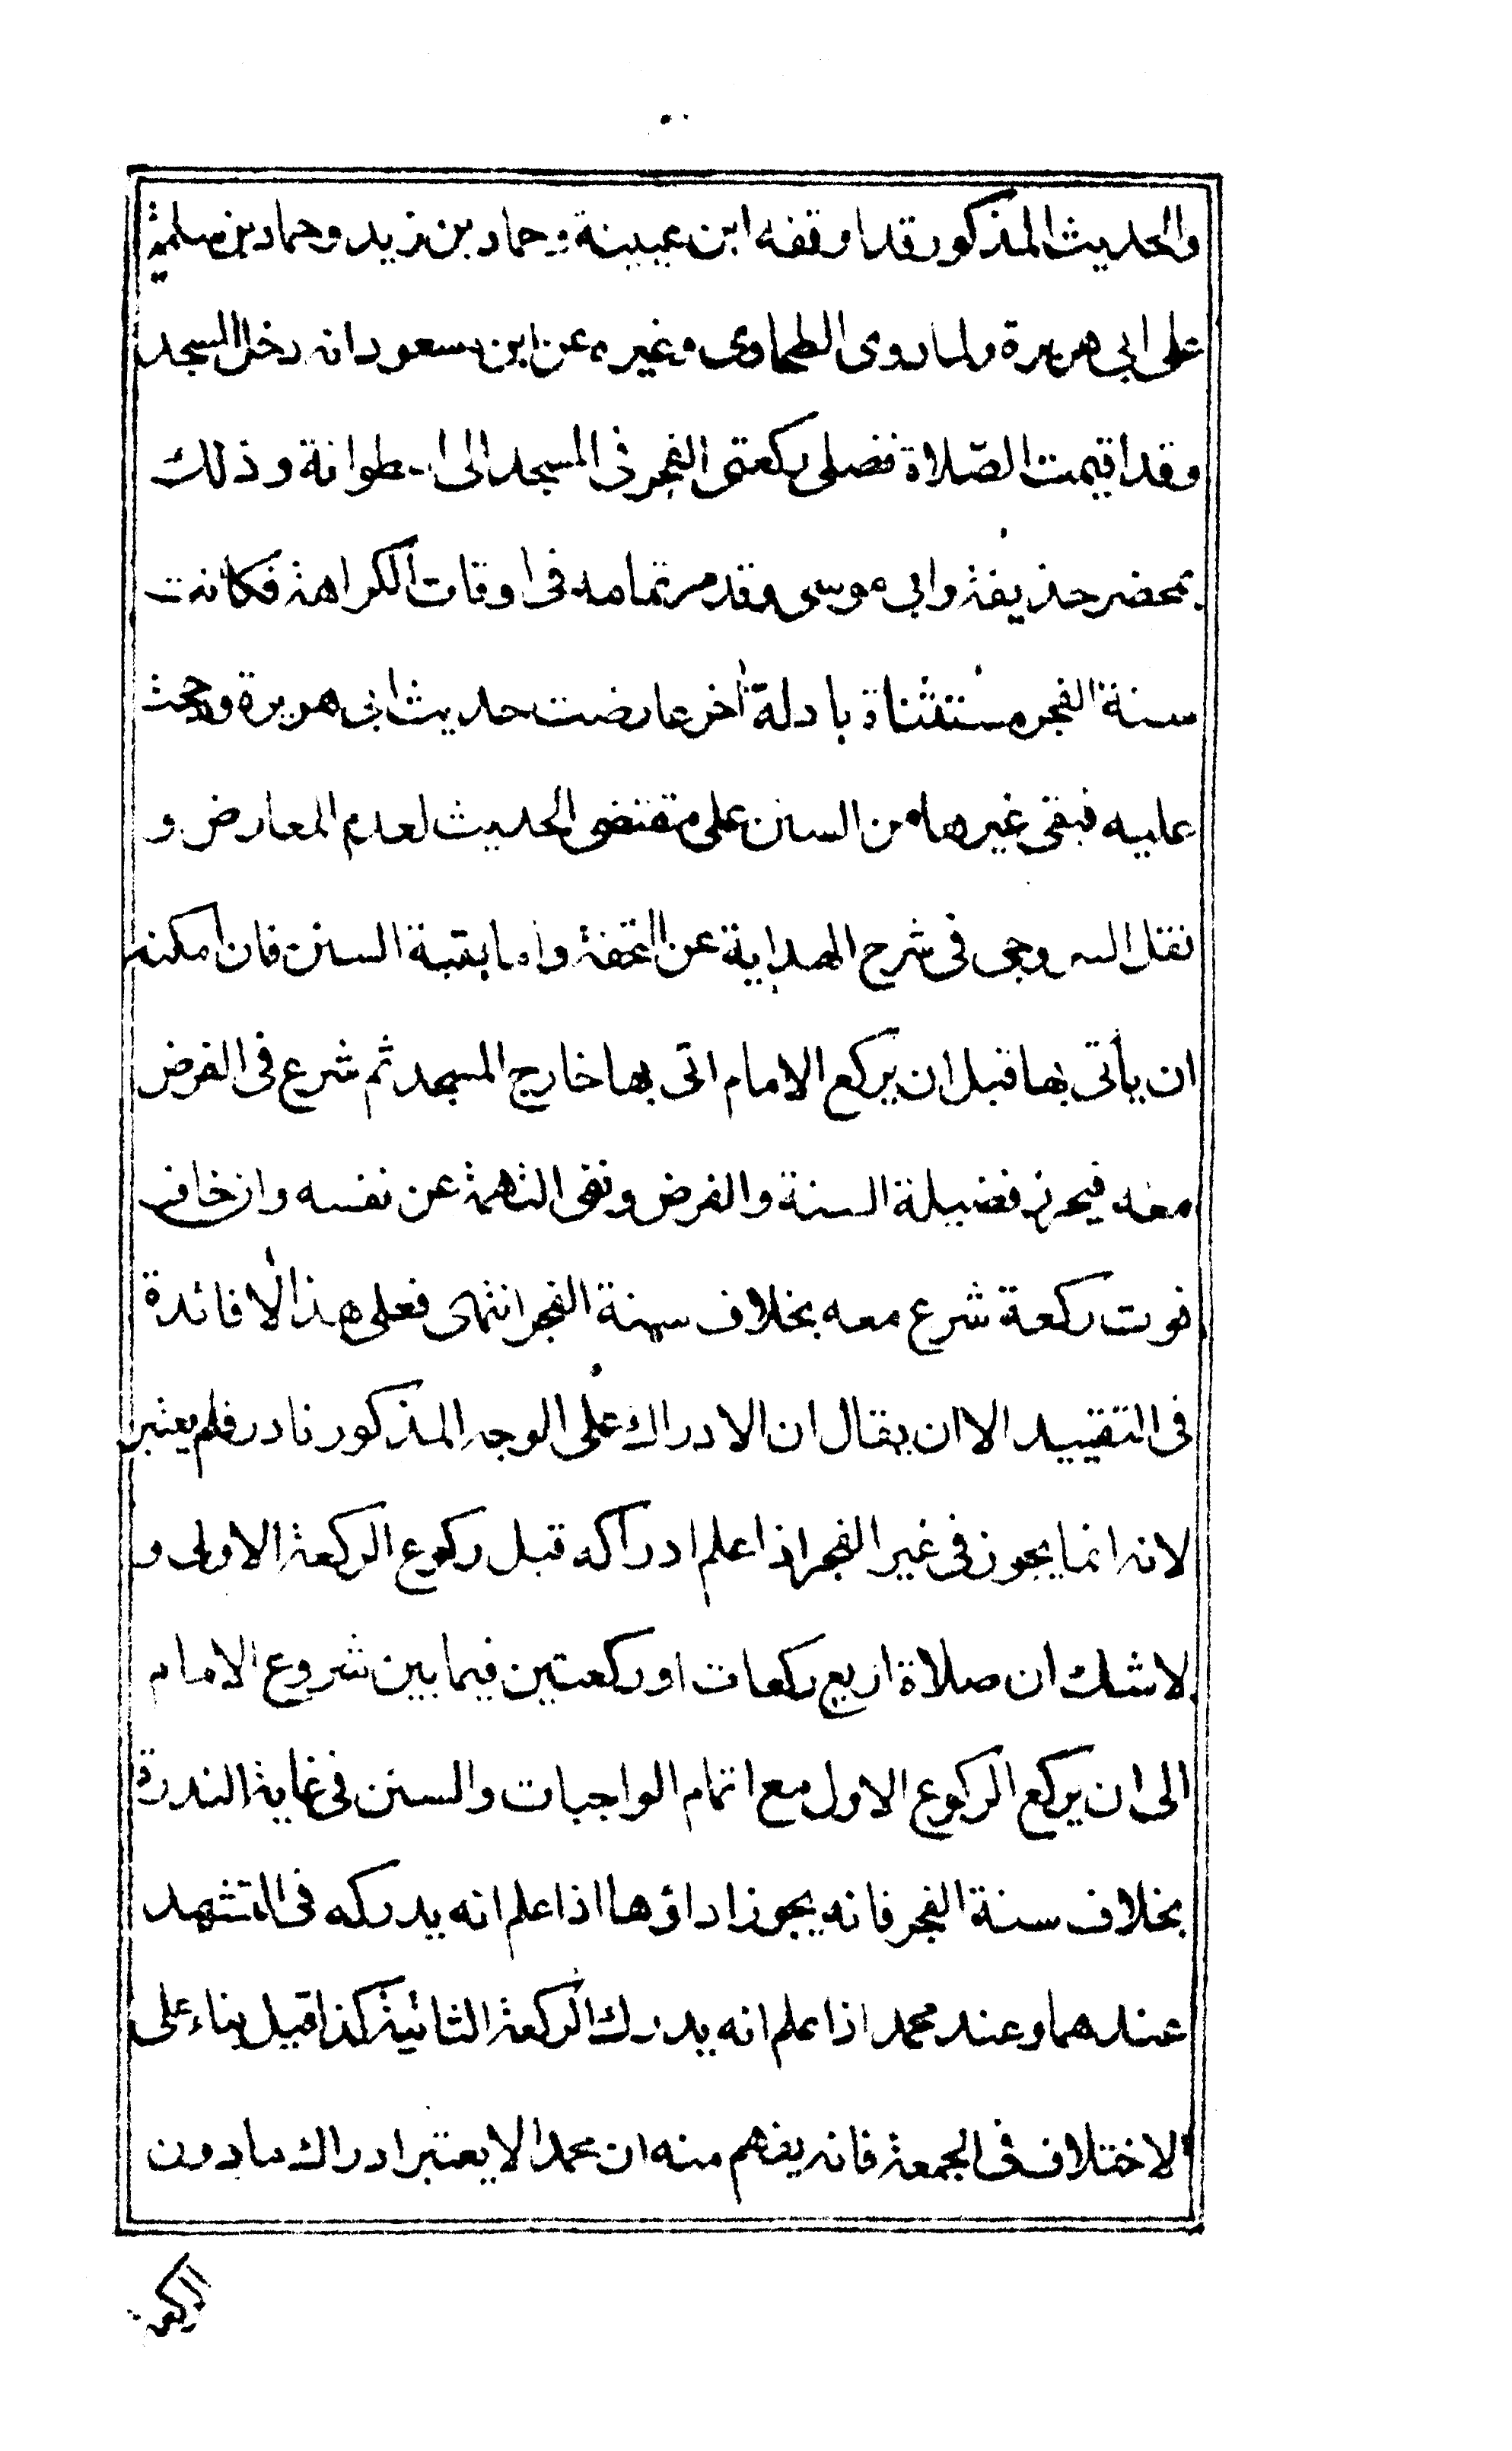 والحديث المذكور قد اوقفه ابن عيينة وحماد بن زيد وحماد بن سلمة
على ابى هريرة ولما روى الطحاوى وغيره عن ابن مسعود انه دخل المسجد
وقد اقيمت الصّلاة فصلى ركعتى الفجر فى المسجد الى اسطوانة وذلك
بمحضر حذيفة وابى موسى وقد مر تمامه فى اوقات الكراهة فكانت
سنة الفجر مستثناة بادلة أخر عارضت حديث ابى هريرة ورجحت
عليه فبقى غيرها من السنن على مقتضى الحديث لعدم المعارض و
نقل السروجى فى شرح الهداية عن التحفة واما بقية السنن فان أمكنه
ان يأتى بها قبل ان يركع الامام اتى بها خارج المسجد ثم شرع فى الفرض
معه فيحرز فضيلة السنة والفرض ونفى التهمة عن نفسه وان خاف
فوت ركعة شرع معه بخلاف سنة الفجر انتهى فعلى هذا لا فائدة
فى التقييد الا ان يقال ان الادراك على الوجه المذكور نادر فلم يعتبر
لانه انما يجوز فى غير الفجر اذا علم ادراكه قبل ركوع الركعة الاولى و
لاشك ان صلاة اربع ركعات او ركعتين فيما بين شروع الامام
الى ان يركع الركوع الاول مع اتمام الواجبات والسنن فى غاية الندرة
بخلاف سنة الفجر فانه يجوز اداؤها اذا علم انه يدركه فى التشهد
عندهما وعند محمد اذا علم انه يدرك الركعة الثانية كذا قيل بناء على
الاختلاف فى الجمعة فانه يفهم منه ان محمدا لا يعتبر ادراك مادون
الركعة